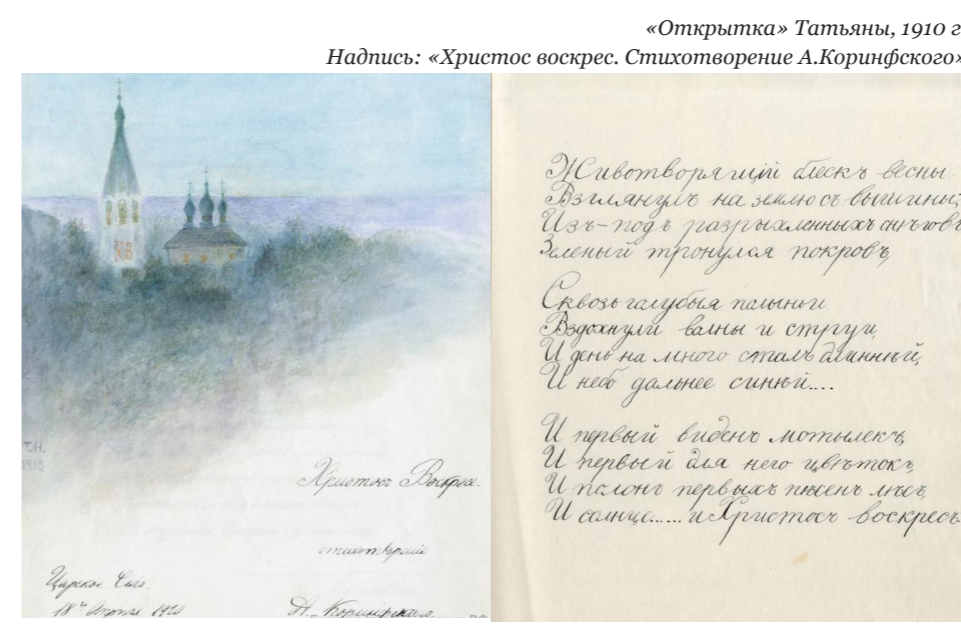 «Открытка» Татьяны, 1910 г
Надпись: «Христос воскрес. Стихотворение А.Коринфского»
Т.Н.
1910.
Христосъ Воскресъ.
Царское Село.
18го Апрѣля 1910
А. Коринфскаго.
Животворящій блескъ весны
Взглянулъ на землю съ вышины;
Изъ-подъ разрыхленныхъ снѣговъ
Зеленый тронулся покровъ,
Сквозь галубыя палыньи
Вздохнули валны и струи,
И день на много сталъ длиннѣй,
И небо дальнее синѣй....
И первый виденъ мотылекъ,
И первый для него цвѣтокъ,
И полонъ первыхъ пѣсенъ лѣсъ,
И солнце..... и Христосъ воскресъ